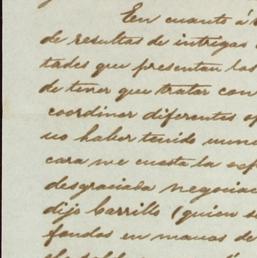 En cuanto á
de resultas de intrigas
tades que presentan las
de tener que tratar con
coordinar diferentes op
no haber tenido
cara me cuesta la
desgraciada negociac
dijo Carrillo (quien se
fondos en manos de